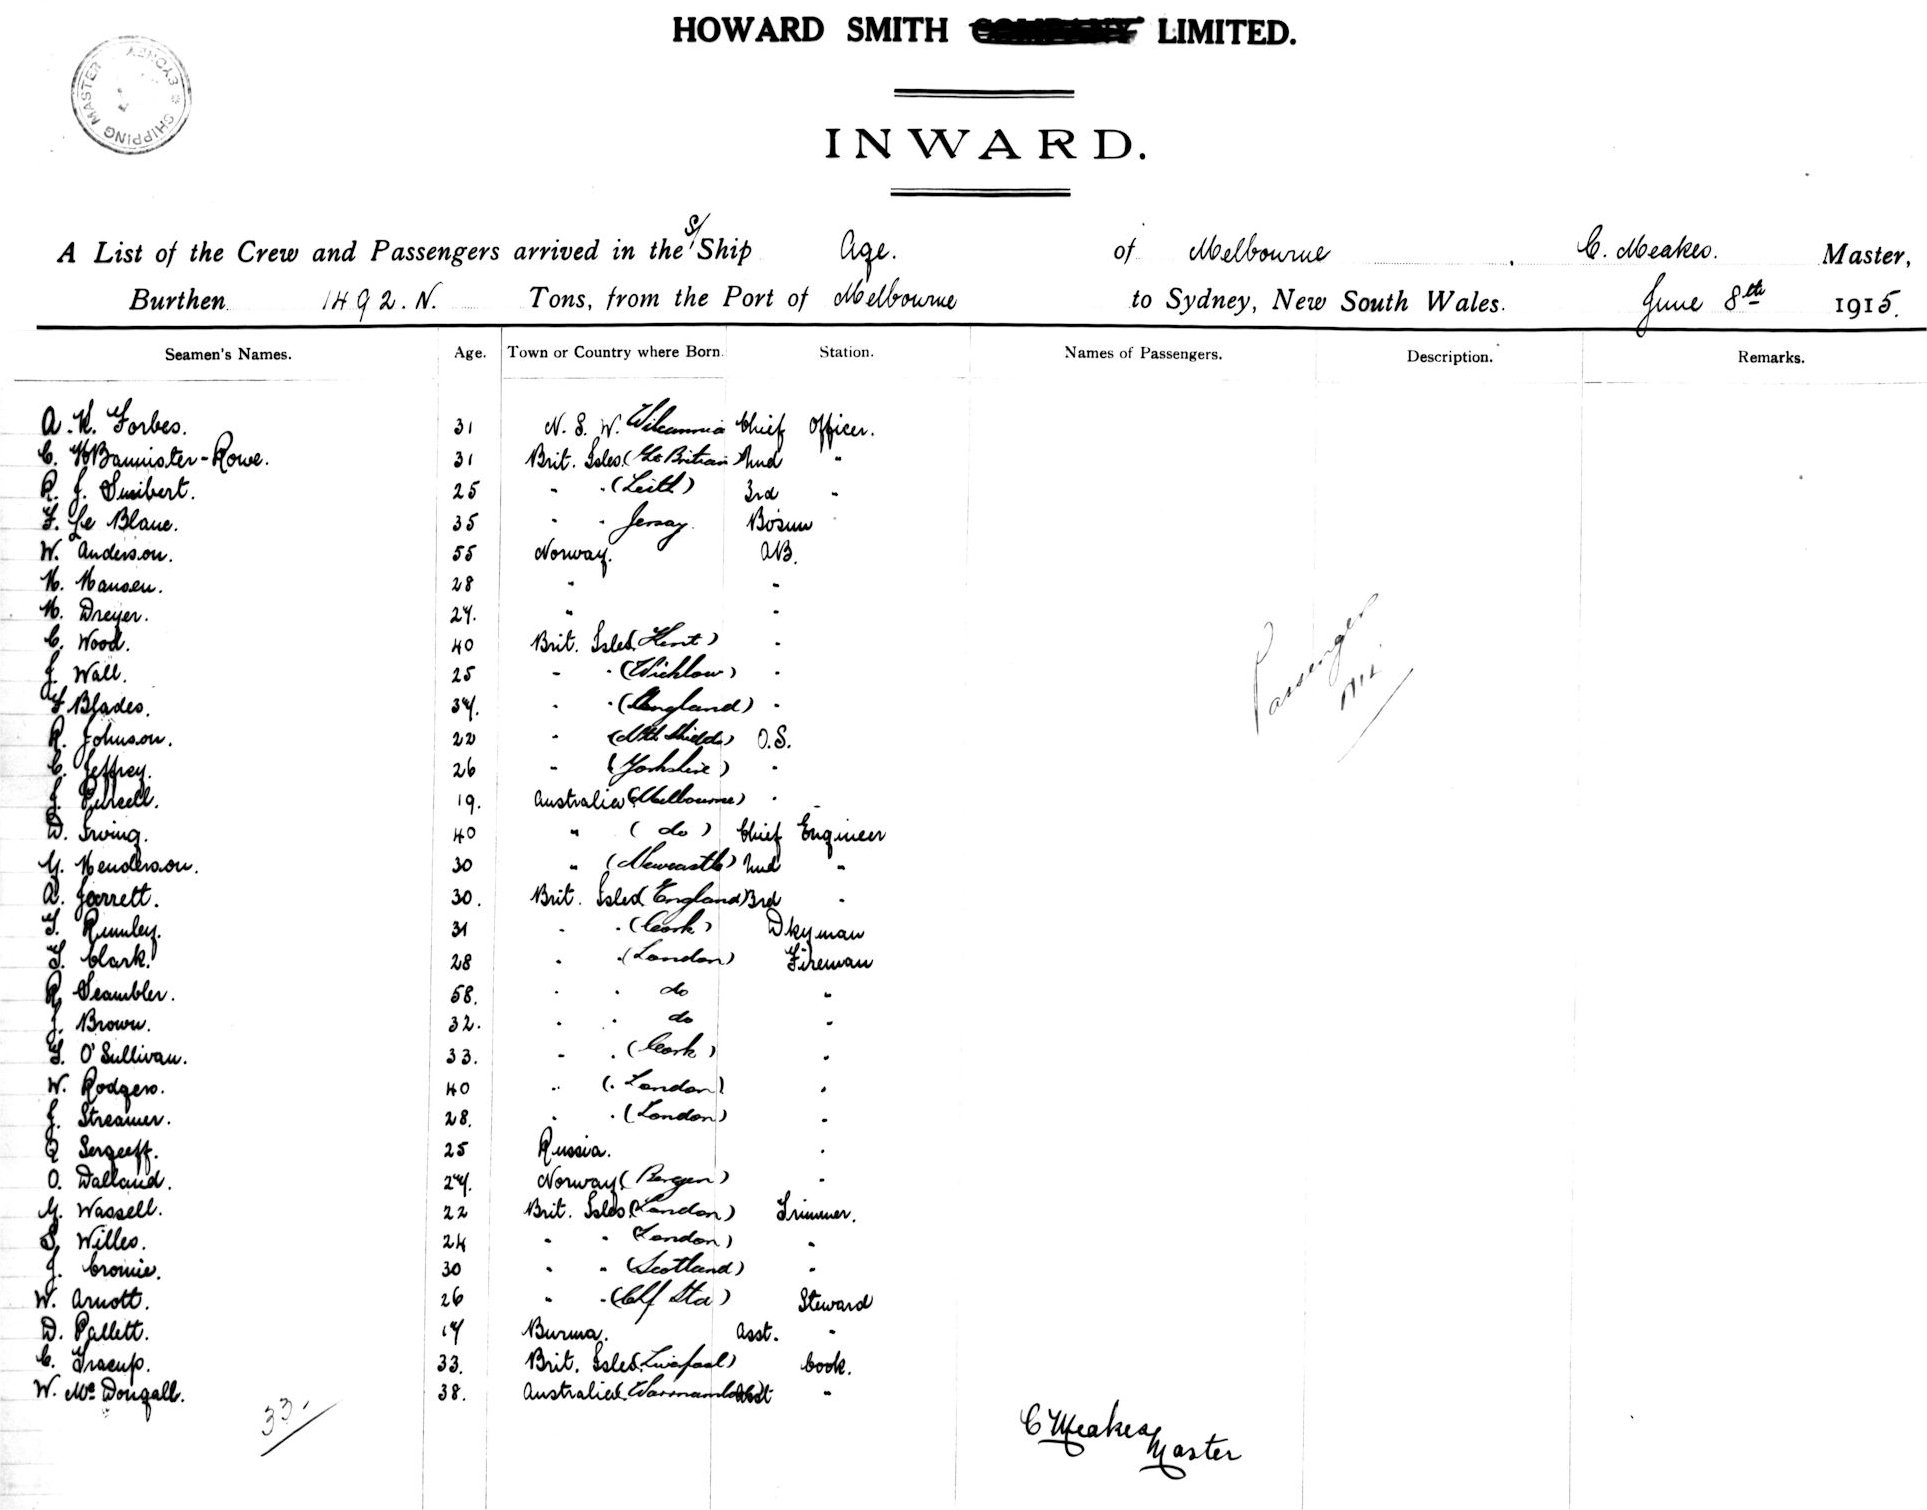 HOWARD SMITH LIMITED.
SHIPPING MASTER SYDNEY
INWARD.
A List of the Crew and Passengers arrived in the S/Ship Age. of Melbourne, C. Meakes. Master,
Burthen 1492. N. Tons, from the Port of Melbourne to Sydney, New South Wales. June 8th 1915.
Seamen's Names. Age. Town or Country where Born. Station. Names of Passengers. Description. Remarks.
A. H. Forbes. 31 N. S. W. Wilcannia Chief Officer.
C. H Bannister-Rowe. 31 Brit. Isles. 2nd "
R. J. Smibert. 25 " " (Leith) 3rd "
F. Le Blanc. 35 " " Jersey. Bosun
W. Anderson. 55 Norway. AB.
H. Hansen. 28 " "
H. Dreyer. 27. " "
C. Wood. 40 Brit. Isles (Kent) "
J. Wall. 25 " " (Wicklow) "
F Blades. 34. " " (England) "
R. Johnson. 22 " (Nth Shields) O.S.
C. Jeffrey. 26 " (Yorkshire) "
J. Pursell. 19. Australia (Melbourne) "
D. Irving. 40 " (do) Chief Engineer
G. Henderson. 30 " (Newcastle) 2nd "
A. Jarrett. 30. Brit. Isles (England) 3rd "
T. Rumley. 31 " " (Cork) Dkyman
T. Clark. 28 " " (London) Fireman
R. Scambler. 58. " " do "
J. Brown. 32. " " do "
T. O'Sullivan. 33. " " (Cork) "
W. Rodgers. 40 " (London) "
J. Streamer. 28. " " (London) "
Sergeeff. 25 Russia. "
O. Dalland. 24. Norway (Bergen) "
G. Wassell. 22 Brit. Isles (London) Trimmer.
S. Willes. 24 " " London) "
J. Cromie. 30 " " (Scotland) "
W. Arnott. 26 " " Steward
D. Pallett. 17 Burma. Asst. "
C. Tracup. 33. Brit. Isles (Liverpool) Cook.
W. McDougall. 38. Australia (Warrnambool) Asst "
Passenger
nil
33.
C Meakes
Master